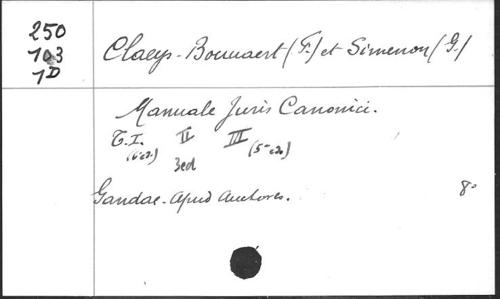 250
103
1D
Claeys-Bouuaert (F.) et Simenon (G.)
Manuale Juris Canonici.
T. I. II III
(6 ed.) 3 ed (5 ed)
Gandae. Apud Auctores. 8°